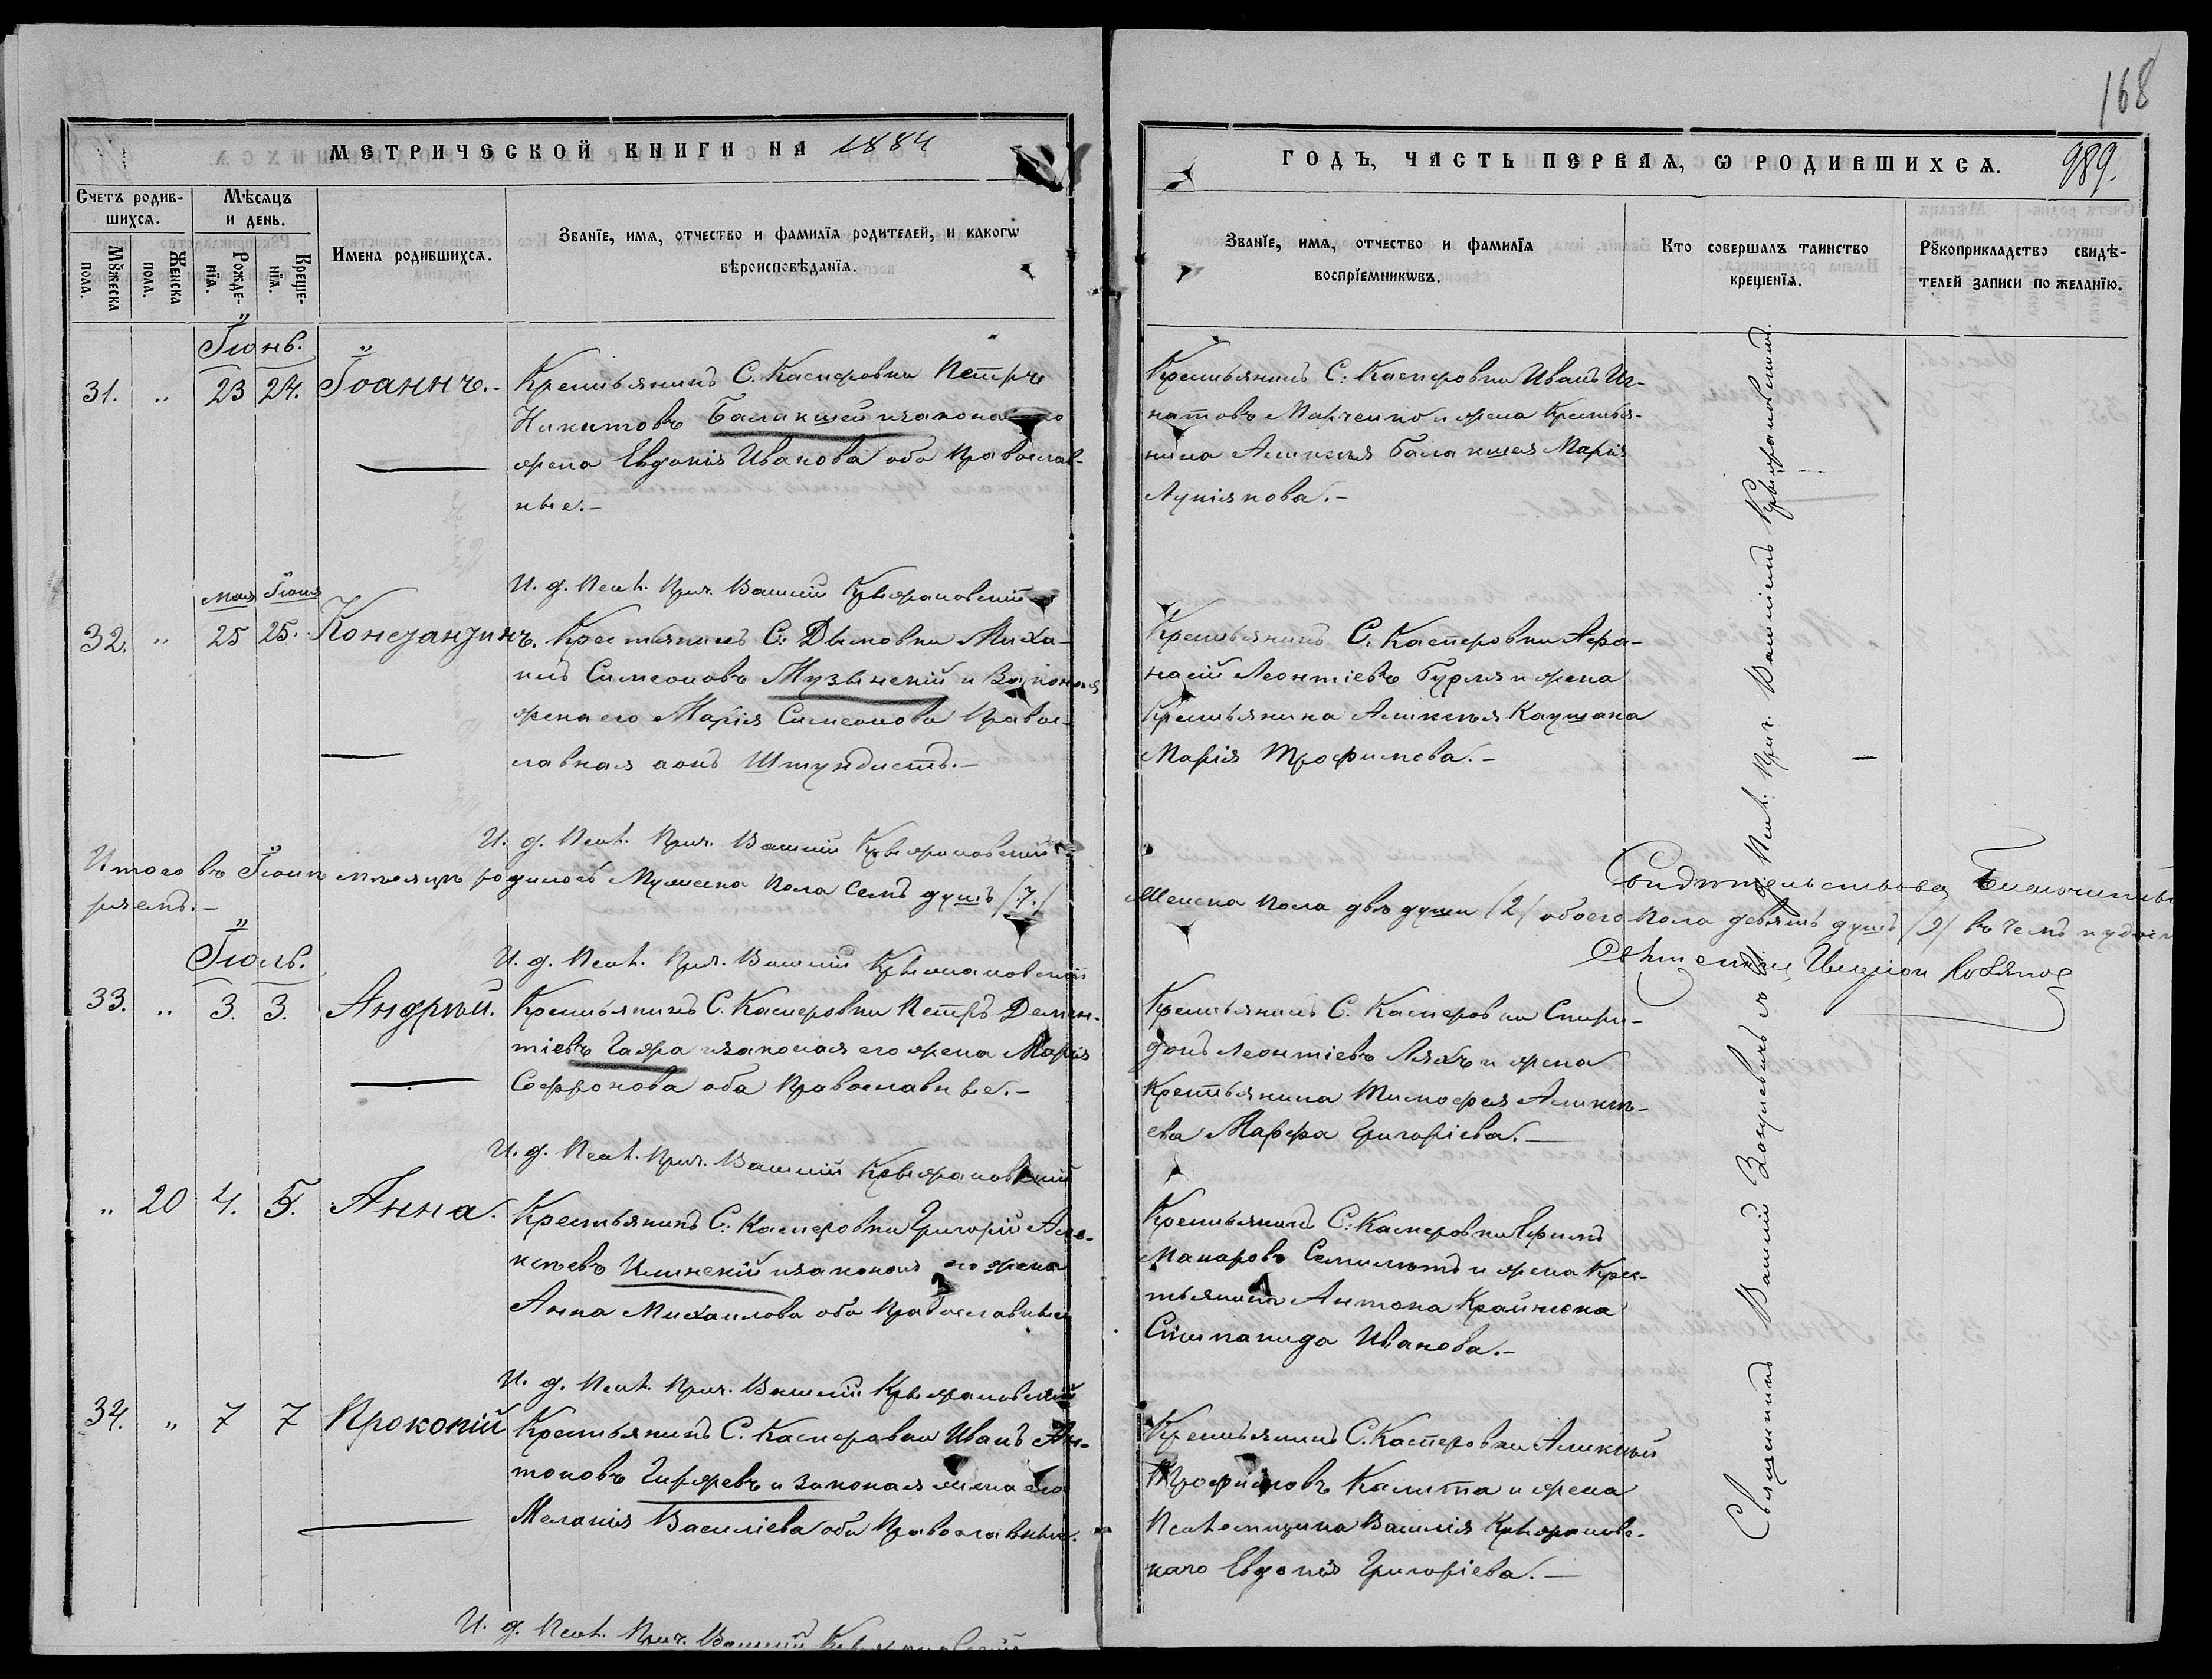 168
МЕТРИЧЕСКОЙ КНИГИ НА 1884
ГОДЪ, ЧАСТЬ ПЕРВАЯ, Ѡ РОДИВШИХСѦ. 989.
Счетъ родив-
шихсѧ.
Мꙋжеска пола.
Женска пола.
Мѣсѧцъ
и день.
Рожде-
нїѧ.
Креще-
нїѧ.
Имена родившихсѧ.
Званїе, имѧ, отчество и фамилїѧ родителей, и какогѡ
вѣроисповѣданїѧ.
Званїе, имѧ, отчество и фамилїѧ
воспрїемникѡвъ.
Кто совершалъ таинство
крещенїѧ.
Рꙋкоприкладство свидѣ-
телей записи по желанїю.
Іюнь.
31. " 23 24. Іоаннъ.-
Крестьянинъ С. Касперовки Петръ
Никитовъ Балакшей и законная его
жена Евдокія Иванова оба Православ-
ные.-
Крестьянинъ С: Касперовки Иванъ Иг-
натовъ Марченко и жена Крестья-
нина Алексея Балакшея Марія
Лукіянова.-
И. д. Псал. Прич. Василій Крыжановскій
Мая Іюня
32. " 25 25. Константинъ.
Крестьянинъ С: Дымовки Миха-
илъ Симеоновъ Музынскій и Законная
жена его Марія Симеонова Правос-
лавная а онъ Штундистъ.-
Крестьянинъ С. Касперовки Афа-
насій Леонтіевъ Бурля и жена
Крестьянина Алексея Каушана
Марія Трофимова.-
И. д. Псал. Прич. Василій Крыжановскій
Итого въ Іюнѣ мѣсяцѣ родилось Мужеска пола семь душъ /7./
Женска пола двѣ души /2/ обоего пола девять душъ /9/ въ чемъ и удосто-
ряемъ.-
И. д. Псал. Прич. Василій Крыжановскій
Іюль.
33. " 3. 3. Андрей.
Крестьянинъ С. Касперовки Петръ Демен-
тіевъ Гажа и законная его жена Марія
Софронова оба Православные.-
Крестьянинъ С. Касперовки Спири-
донъ Леонтіевъ Ляхъ и жена
Крестьянина Тимофея Алексѣ-
ева Марфа Григоріева.-
И. д. Псал. Прич. Василій Крыжановскій
" 20 4. 5. Анна.
Крестьянинъ С: Касперовки Григорій Але-
ксѣевъ Илинскій и законная его жена
Анна Михаилова оба Православные
Крестьянинъ С: Касперовки Ефимъ
Макаровъ Семилетъ и жена Крес-
тьянина Антона Крайнюка
Степанида Иванова.-
И. д. Псал. Прич. Василій Крыжановскій
34. " 7 7 Прокопій
Крестьянинъ С. Касперовки Иванъ Ан-
тоновъ Гиржевъ и законная жена его
Меланія Василіева оба Православные.
Крестьянинъ С. Касперовки Алексѣй
Трофимовъ Калита и жена
Псаломщика Василія Крыжановс-
каго Евдокія Григоріева.-
И. д. Псал. Прич. Василій Крыжановскій
Священникъ Василій
И. д. Псал. Прич. Василій Крыжановскій.